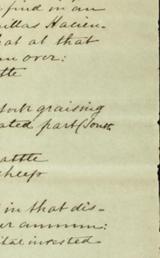 find in an
illas Hacien-
hat at that
an over:
ttle
fork graising
ated part (South
attle
cheep
in that dis-
er annum:
ital invested